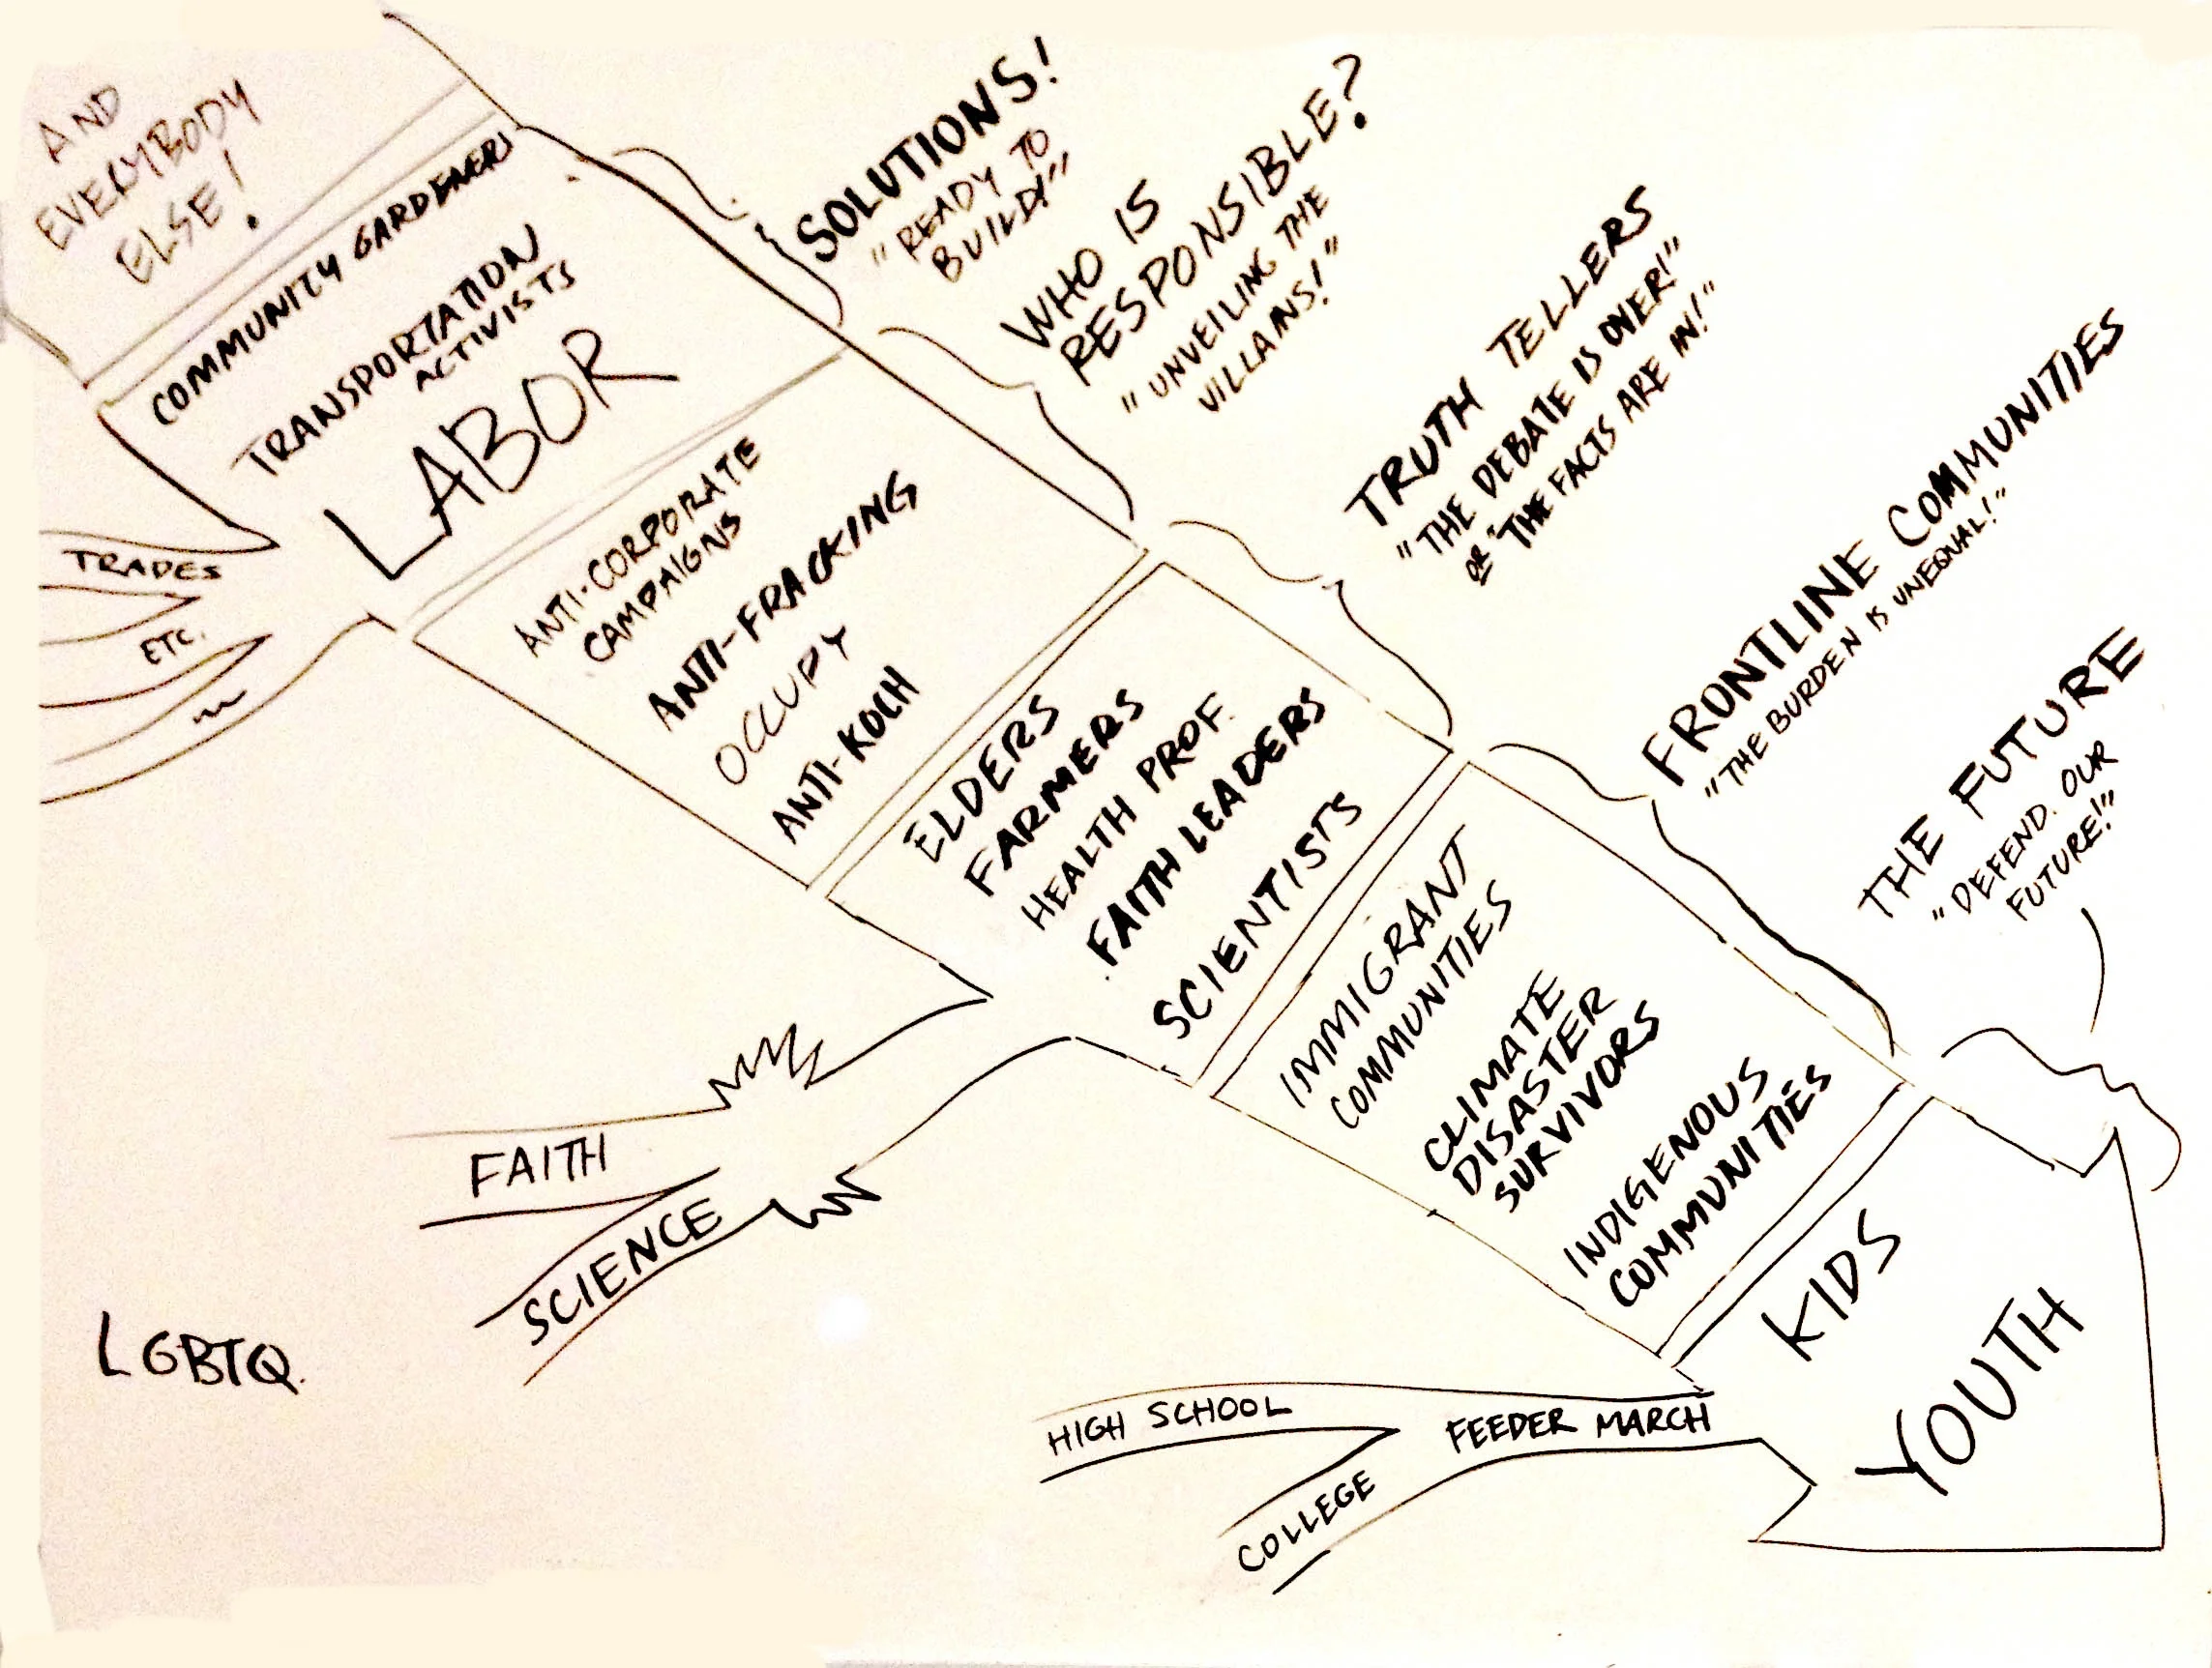 AND
EVERYBODY
ELSE!
COMMUNITY GARDENERS
TRANSPORTATION
ACTIVISTS
LABOR
TRADES
ETC.
SOLUTIONS!
"READY TO
BUILD!"
ANTI-CORPORATE
CAMPAIGNS
ANTI-FRACKING
OCCUPY
ANTI-KOCH
WHO IS
RESPONSIBLE?
"UNVEILING THE
VILLAINS!"
ELDERS
FARMERS
HEALTH PROF.
FAITH LEADERS
SCIENTISTS
FAITH
SCIENCE
TRUTH TELLERS
"THE DEBATE IS OVER!"
OR "THE FACTS ARE IN!"
IMMIGRANT
COMMUNITIES
CLIMATE
DISASTER
SURVIVORS
INDIGENOUS
COMMUNITIES
FRONTLINE COMMUNITIES
"THE BURDEN IS UNEQUAL!"
KIDS
YOUTH
FEEDER MARCH
HIGH SCHOOL
COLLEGE
THE FUTURE
"DEFEND OUR
FUTURE!"
LGBTQ